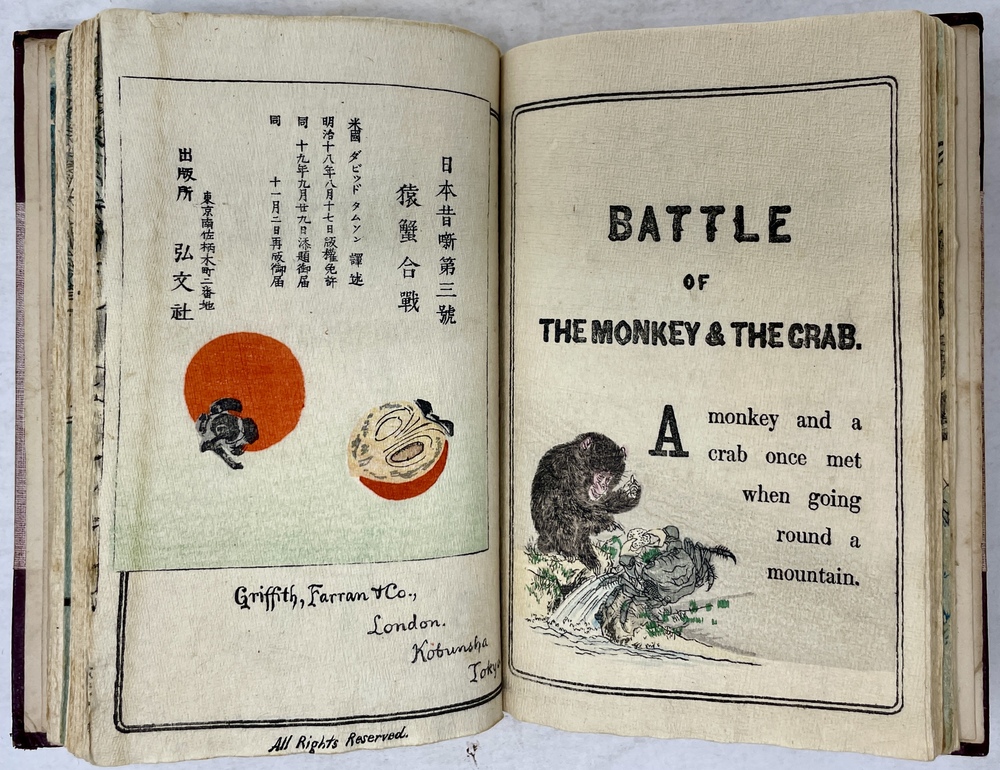 日本昔噺第三號
猿蟹合戰
米國 ダビッド タムソン 譯述
明治十八年八月十七日版權免許
同 十九年九月廿九日添題御届
同 十一月二日再版御届
東京南佐柄木町二番地
出版所 弘文社
Griffith, Farran & Co.,
London.
Kobunsha
Tokyo
All Rights Reserved.
BATTLE
OF
THE MONKEY & THE CRAB.
A monkey and a
crab once met
when going
round a
mountain.